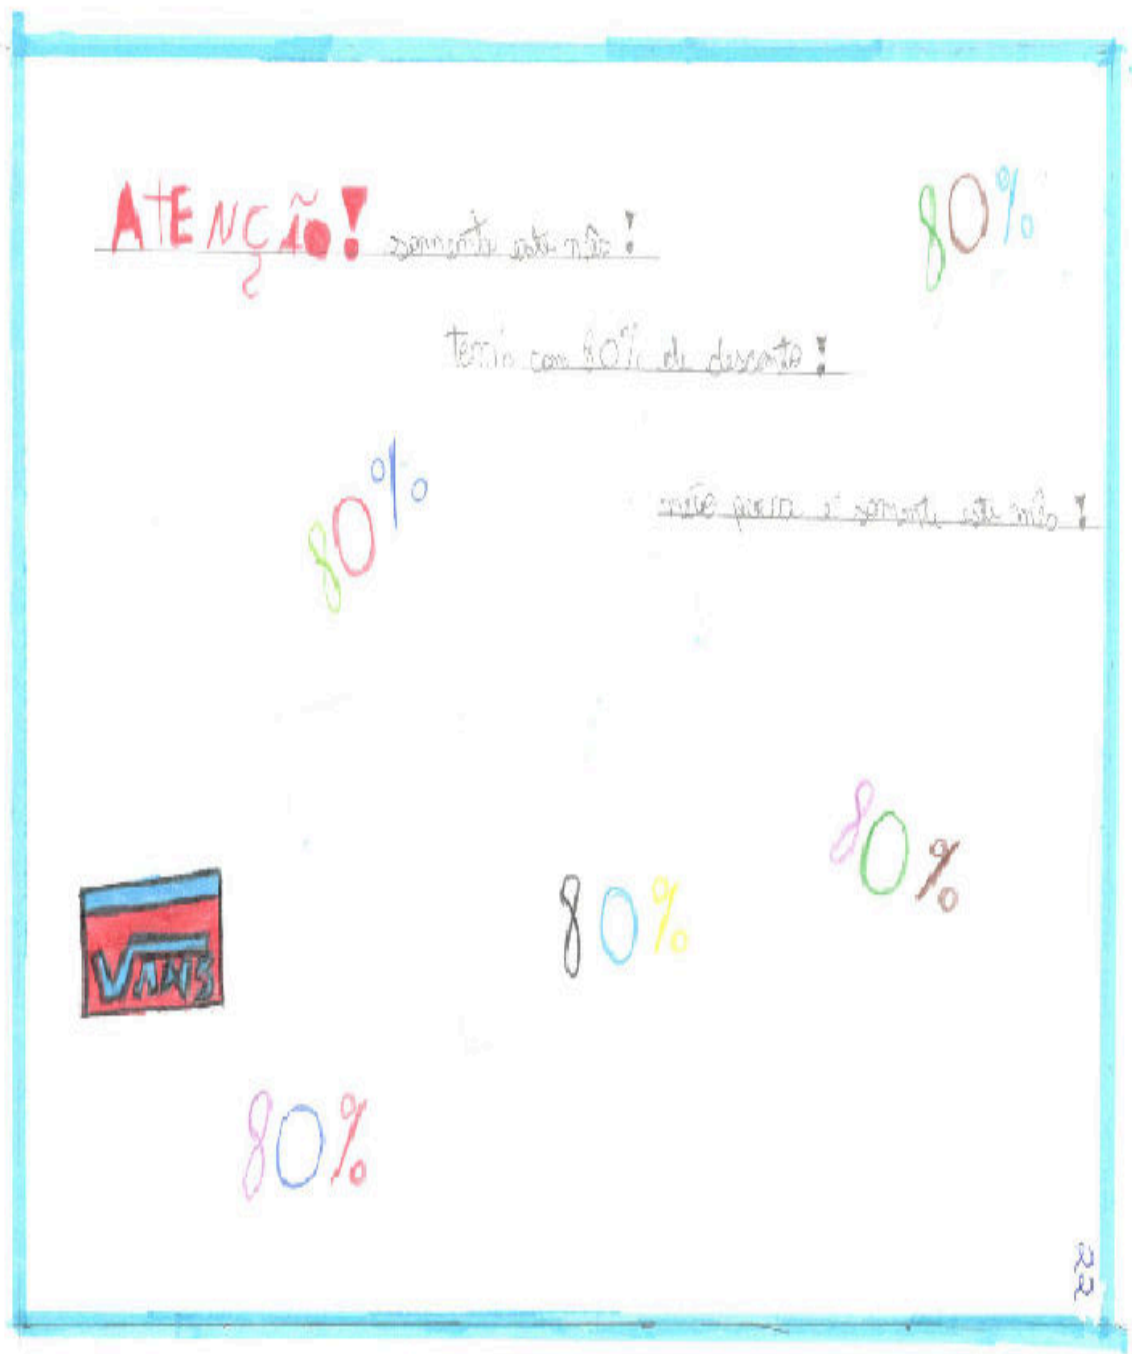 ATENÇÃO! somente este mês!
80%
tenis com 80% de desconto!
80%
somente este mês!
80%
VANS
80%
80%
22